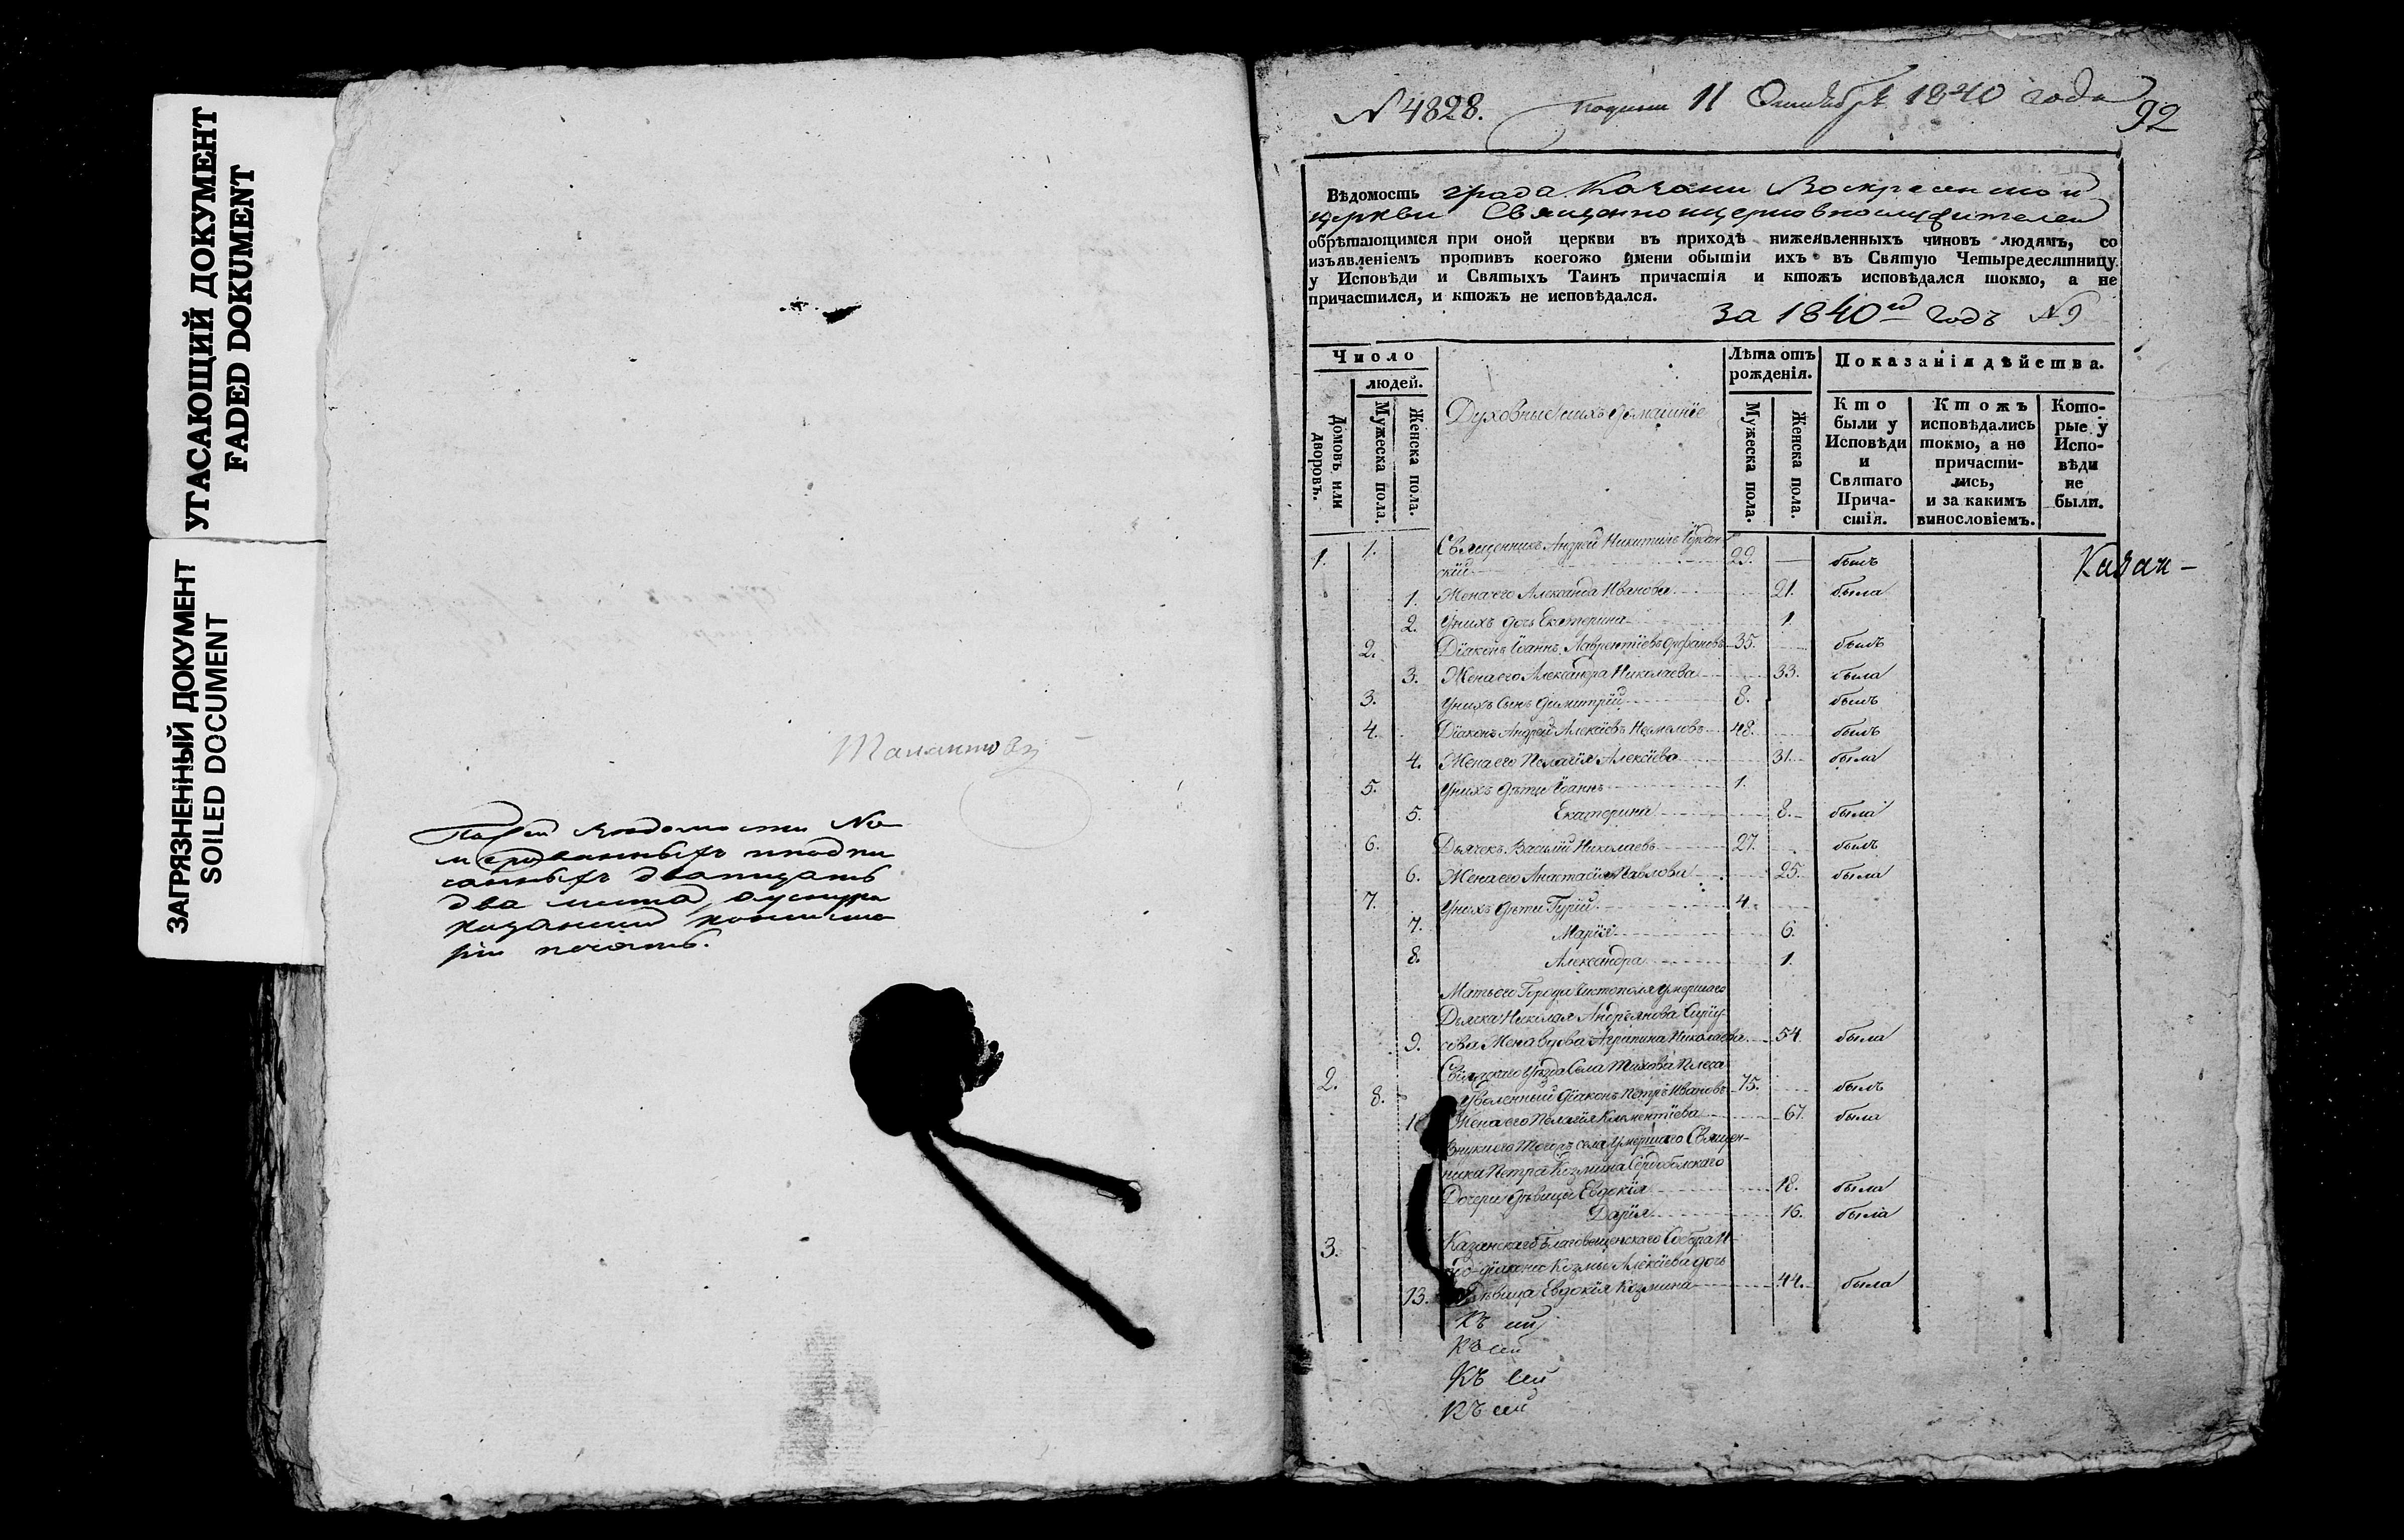 УГАСАЮЩИЙ ДОКУМЕНТ
FADED DOKUMENT
ЗАГРЯЗНЕННЫЙ ДОКУМЕНТ
SOILED DOCUMENT
два листа
печать.
N 4828. 11 Октября 1840 года
92
Вѣдомость града Казани Воскресенской
церкви Священноцерковнослужителей
обрѣтающимся при оной церкви въ приходѣ нижеявленныхъ чиновъ людямъ, со
изъявленіемъ противъ коегожо имени обытіи ихъ въ Святую Четыредесятницу
у Исповѣди и Святыхъ Таинъ причастія и ктожъ исповѣдался токмо, а не
причастился, и ктожъ не исповѣдался.
за 1840й годъ N9
Число
людей.
Домовъ или дворовъ.
Мужеска пола.
Женска пола.
Духовные и ихъ домашніе
Лѣта отъ рожденія.
Мужеска пола.
Женска пола.
Показанія дѣйства.
Кто были у Исповѣди и Святаго Причастія.
Ктожъ исповѣдались токмо, а не причастились, и за какимъ винословіемъ.
Которые у Исповѣди не были.
1. 1. Священникъ Андрей Никитинъ
скій 29. — былъ
Казан-
1. Жена его Александра Иванова 21. была
2. У нихъ дочь Екатерина 1.
2. Діаконъ Іоаннъ Лаврентіевъ 35. былъ
3. Жена его Александра Николаева 33. была
3. У нихъ сынъ Димитрій 8. былъ
4. Діаконъ Андрей Алексіевъ 48. былъ
4. Жена его Пелагія Алексіева 31. была
5. У нихъ дѣти Іоаннъ 1.
5. Екатерина 8. была
6. Дьячекъ Василій Николаевъ 27. былъ
6. Жена его Анастасія Павлова 25. была
7. У нихъ дѣти Гурій 4.
7. Марія 6.
8. Александра 1.
Мать его Города Чистополя умершаго
Дьячка Николая Андреянова
9. Жена вдова Агрипина Николаева 54. была
2. Свіяжскаго уѣзда Села Тихова Плеса
8. Уволенный Діаконъ Петръ Ивановъ 75. былъ
10 Жена его Пелагія Климентіева 67. была
Внуки его тогожъ села умершаго Священ-
ника Петра Козмина Сердобольскаго
Дочери дѣвицы Евдокія 18. была
Дарія 16. была
3. Казанскаго Благовещенскаго Собора И-
діакона Козмы Алексіева дочь
13. Дѣвица Евдокія Козмина 44. была
Къ сей
Къ сей
Къ сей
Къ сей